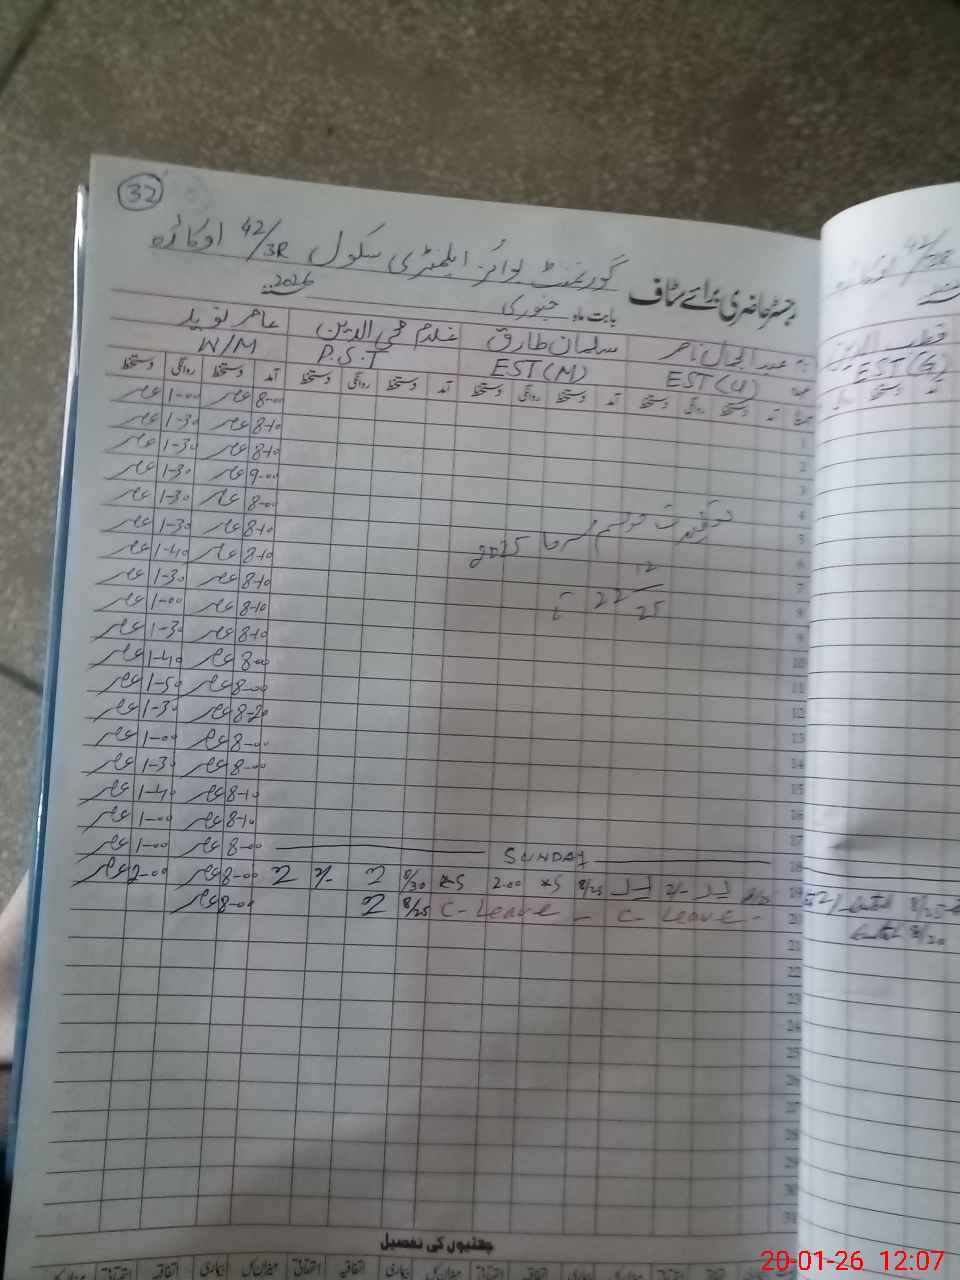 32
گورنمنٹ بوائز ایلیمنٹری سکول 42/3R اوکاڑہ
رجسٹر حاضری برائے سٹاف
بابت ماہ جنوری 2026
سلمان طارق غلام محی الدین عامر نوید
EST(U) EST(M) P.S.T W/M
EST(G)
آمد دستخط روانگی دستخط آمد دستخط روانگی دستخط آمد دستخط روانگی دستخط آمد دستخط روانگی دستخط
1 8-00 عامر 1-00 عامر
2 8-10 عامر 1-30 عامر
3 8-10 عامر 1-30 عامر
4 9-00 عامر 1-30 عامر
5 8-00 عامر 1-30 عامر
6 8-10 عامر 1-30 عامر
7 8-10 عامر 1-40 عامر
8 8-10 عامر 1-30 عامر
9 8-10 عامر 1-00 عامر
10 8-10 عامر 1-30 عامر
11 8-00 عامر 1-40 عامر
12 8-00 عامر 1-50 عامر
13 8-20 عامر 1-30 عامر
14 8-00 عامر 1-00 عامر
15 8-00 عامر 1-30 عامر
16 8-10 عامر 1-40 عامر
17 8-10 عامر 1-00 عامر
18 SUNDAY 8-00 عامر 1-00 عامر
19 8/25 2.00 8/30 8-00 عامر 2-00 عامر
20 C-Leave - C-Leave - 8/25 8-00 عامر
21
22
23
24
25
26
27
28
29
30
31
موسم سرما 2025
22/12/25
8/25
8/20
چھٹیوں کی تفصیل
اتفاقیہ استحقاقی بیماری میزان کل
20-01-26 12:07